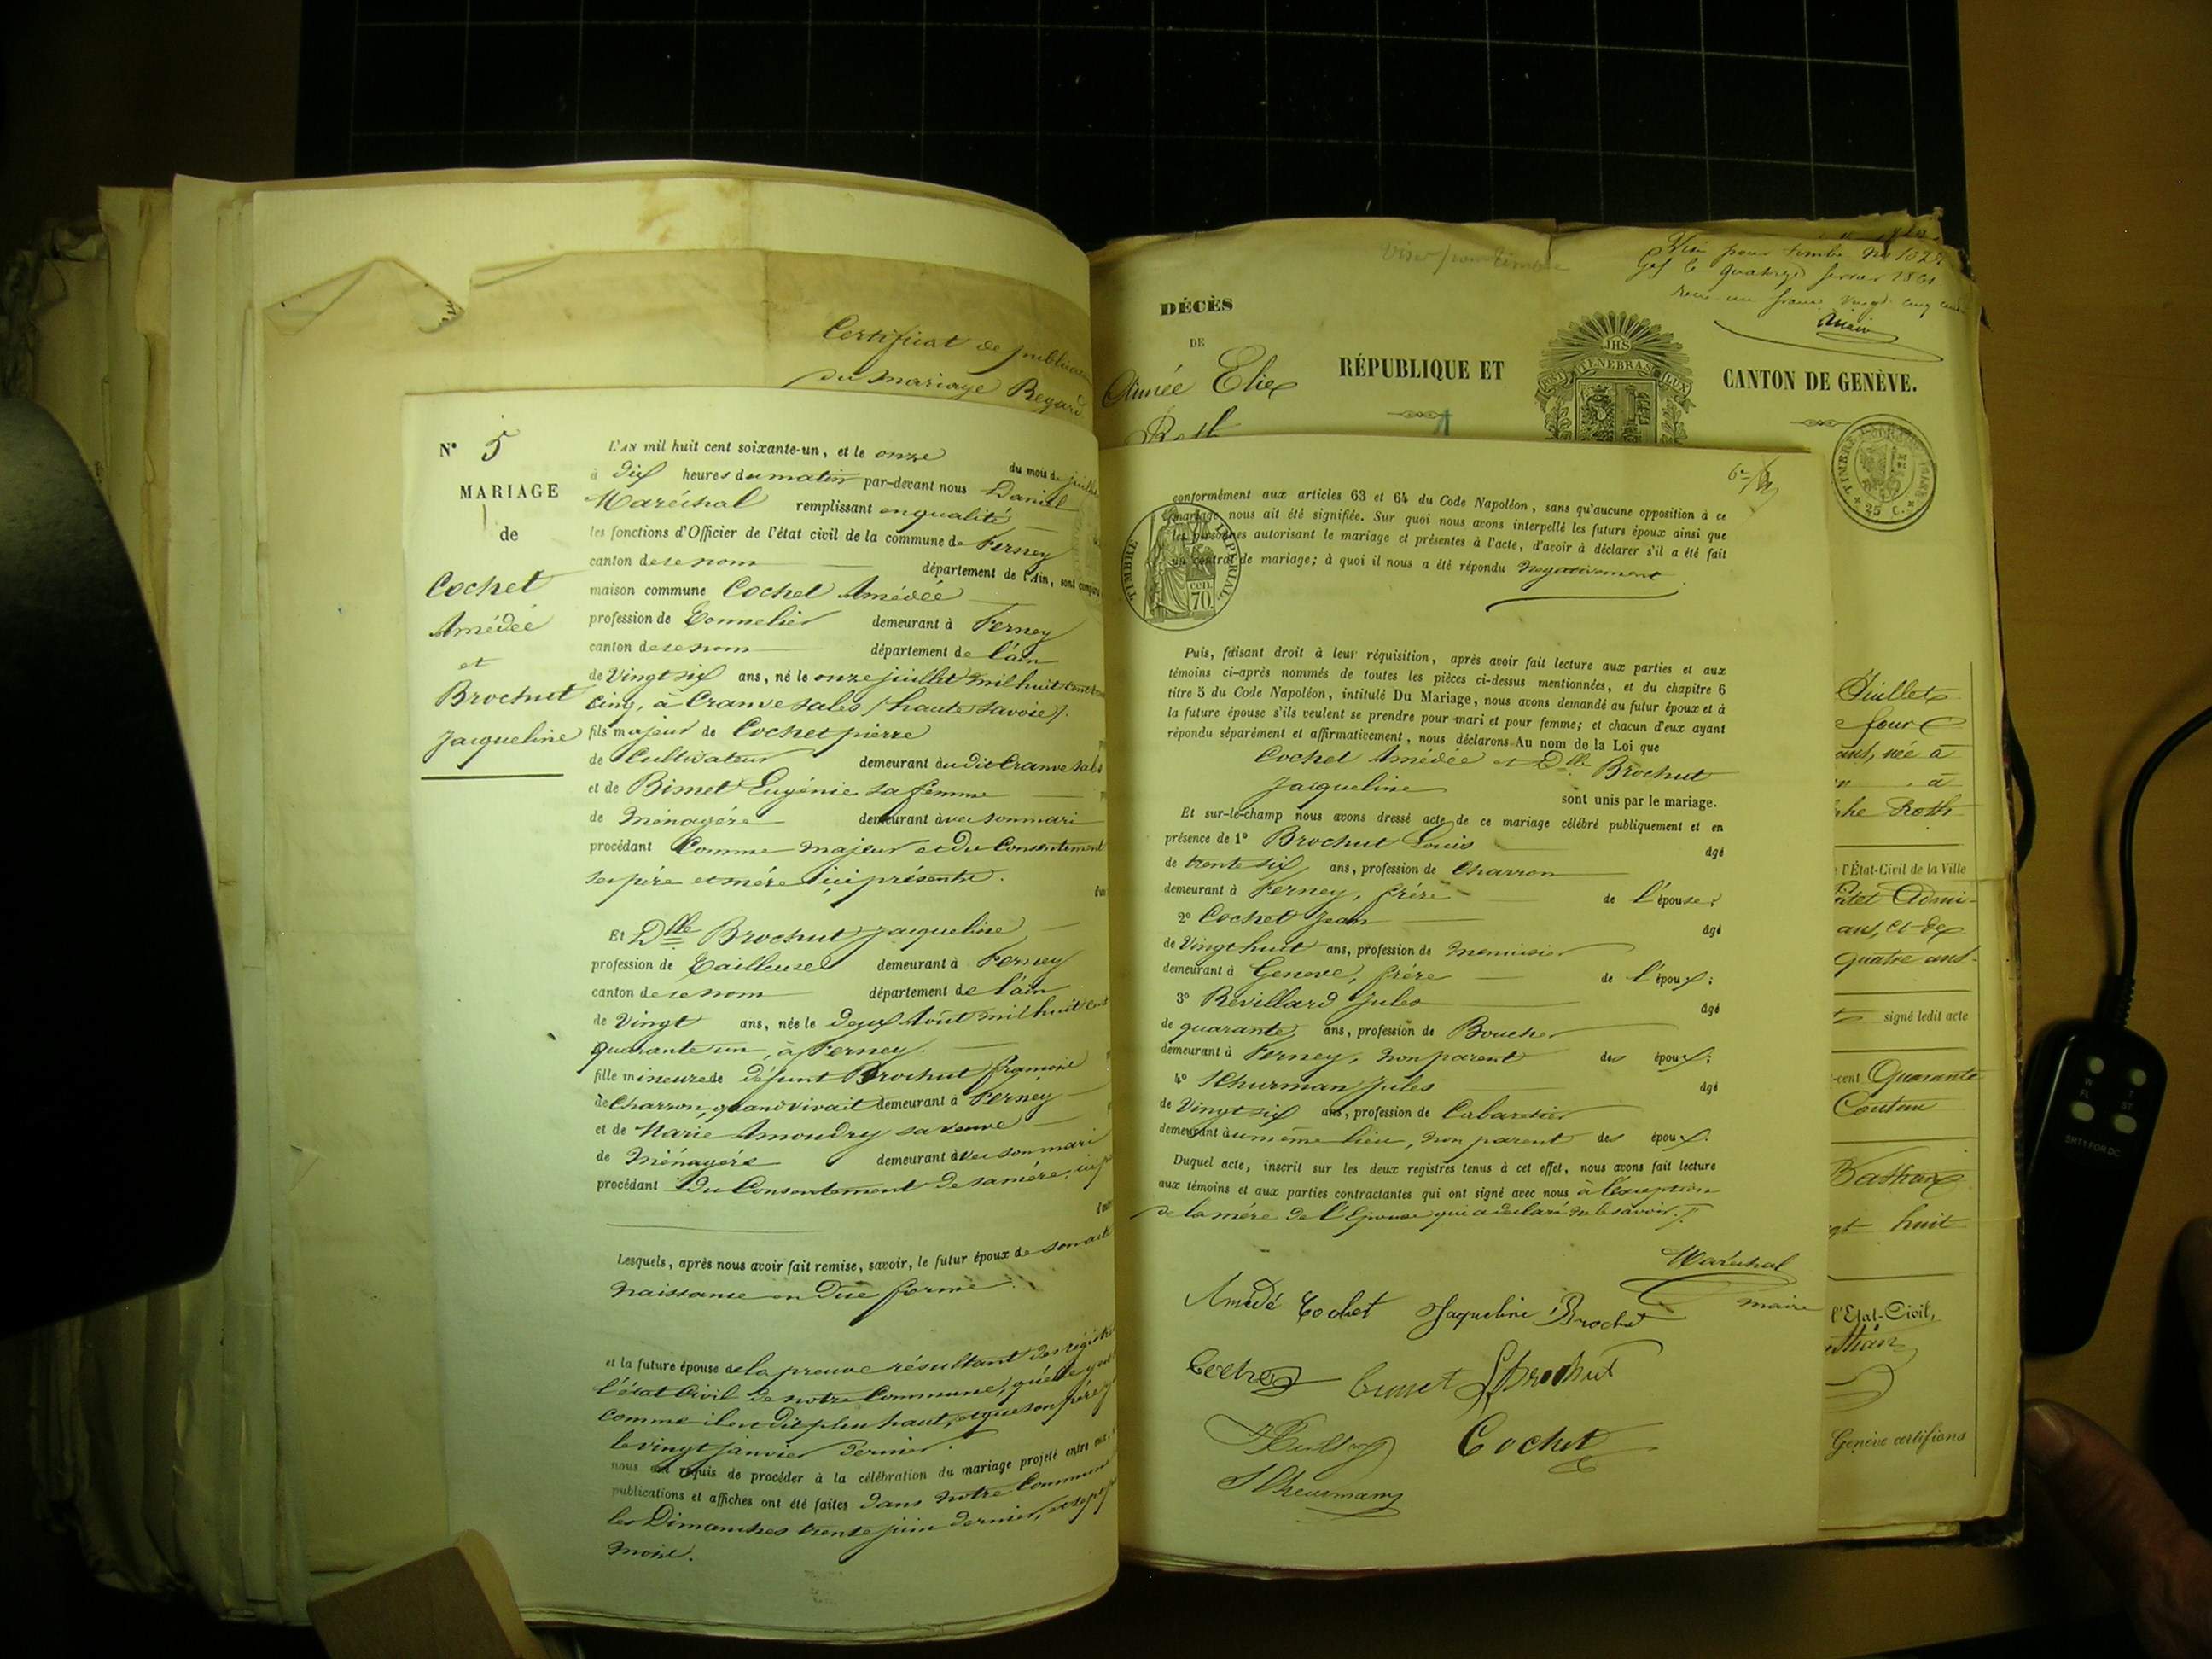 Certificat de publication
du mariage Regard
N° 5
MARIAGE
de
Cochet
Amédée
et
Brochut
Jacqueline
L'AN mil huit cent soixante-un, et le onze du mois de juillet
à dix heures du matin par-devant nous Daniel
Maréchal remplissant en qualité
les fonctions d'Officier de l'état civil de la commune de Ferney
canton de ce nom département de l'Ain, sont comparus
maison commune Cochet Amédée
profession de Tonnelier demeurant à Ferney
canton de ce nom département de l'ain
de Vingt six ans, né le onze juillet mil huit cent
cinq, à Cranve sales (haute Savoie).
fils majeur de Cochet pierre
de Cultivateur demeurant audit Cranve Sales
et de Bimet Eugénie sa femme
de Ménagére demeurant avec son mari
procédant Comme majeur et du Consentement
ses pére et mére ici présents.
Et Dlle Brochut Jacqueline
profession de Tailleuse demeurant à Ferney
canton de ce nom département de l'ain
de Vingt ans, née le deux Août mil huit cent
quarante un, à Ferney.
fille mineure de défunt Brochut
de Charron, quand vivait demeurant à Ferney
et de Marie Amoudry sa veuve
de Ménagére demeurant avec son mari
procédant du Consentement de sa mére, ici
Lesquels, après nous avoir fait remise, savoir, le futur époux de son acte
naissance en Due forme.
et la future épouse de la preuve résultant des régistres
l'état Civil de notre Commune, qu'elle y est
comme il est dit plus haut, et que son pére y
le vingt janvier dernier.
nous ont requis de procéder à la célébration du mariage projeté entre eux,
publications et affiches ont été faites dans notre Commune
les Dimanches trente juin dernier, et sept
mois.
Viser pour timbre
Visé pour timbre No
Gex le quatorze février 1861
reçu un franc vingt cinq cent
DÉCÈS
DE
Aimée Elise
Roth
RÉPUBLIQUE ET CANTON DE GENÈVE.
JHS
POST TENEBRAS LUX
25 C.
TIMBRE IMPERIAL
cen.
70.
conformément aux articles 63 et 64 du Code Napoléon, sans qu'aucune opposition à ce
mariage nous ait été signifiée. Sur quoi nous avons interpellé les futurs époux ainsi que
les personnes autorisant le mariage et présentes à l'acte, d'avoir à déclarer s'il a été fait
un contrat de mariage; à quoi il nous a été répondu Négativement
Puis, faisant droit à leur réquisition, après avoir fait lecture aux parties et aux
témoins ci-après nommés de toutes les pièces ci-dessus mentionnées, et du chapitre 6
titre 5 du Code Napoléon, intitulé Du Mariage, nous avons demandé au futur époux et à
la future épouse s'ils veulent se prendre pour mari et pour femme; et chacun d'eux ayant
répondu séparément et affirmativement, nous déclarons Au nom de la Loi que
Cochet Amédée et Dlle Brochut
Jacqueline sont unis par le mariage.
Et sur-le-champ nous avons dressé acte de ce mariage célébré publiquement et en
présence de 1° Brochut Louis âgé
de trente six ans, profession de Charron
demeurant à Ferney, frére de l'épouse;
2° Cochet Jean âgé
de Vingt huit ans, profession de Menuisier
demeurant à Geneve, frére de l'époux;
3° Revillard Jules âgé
de quarante ans, profession de Boucher
demeurant à Ferney, non parent des époux;
4° Schurman Jules âgé
de Vingt six ans, profession de Cabaretier
demeurant au même lieu, non parent des époux.
Duquel acte, inscrit sur les deux registres tenus à cet effet, nous avons fait lecture
aux témoins et aux parties contractantes qui ont signé avec nous à l'exception
de la mére de l'Epouse qui a déclaré ne le savoir.
Maréchal
maire
Amedé Cochet Jaqueline Brochut
Cochet LBrochut
Cochet
Juillet
ans, née à
à
Roth
l'État-Civil de la Ville
Admi-
ans, et de
quatre ans.
signé ledit acte
-cent Quarante
Coutau
huit
l'Etat-Civil,
Genève certifions
SHTTFORDC